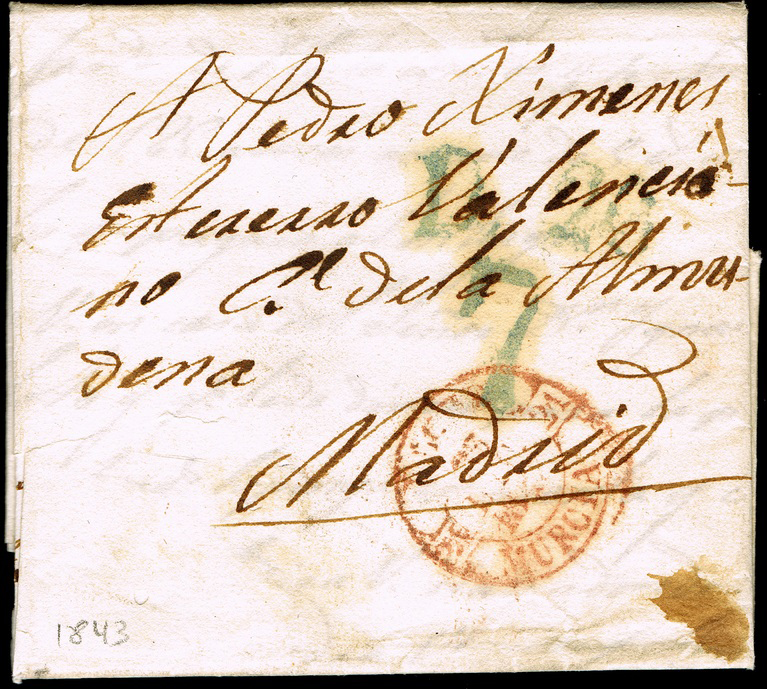 A Pedro Ximenes
Esterero Valencia-
no C.ͤ de la Almu-
dena
Madrid
7
MURCIA
1843